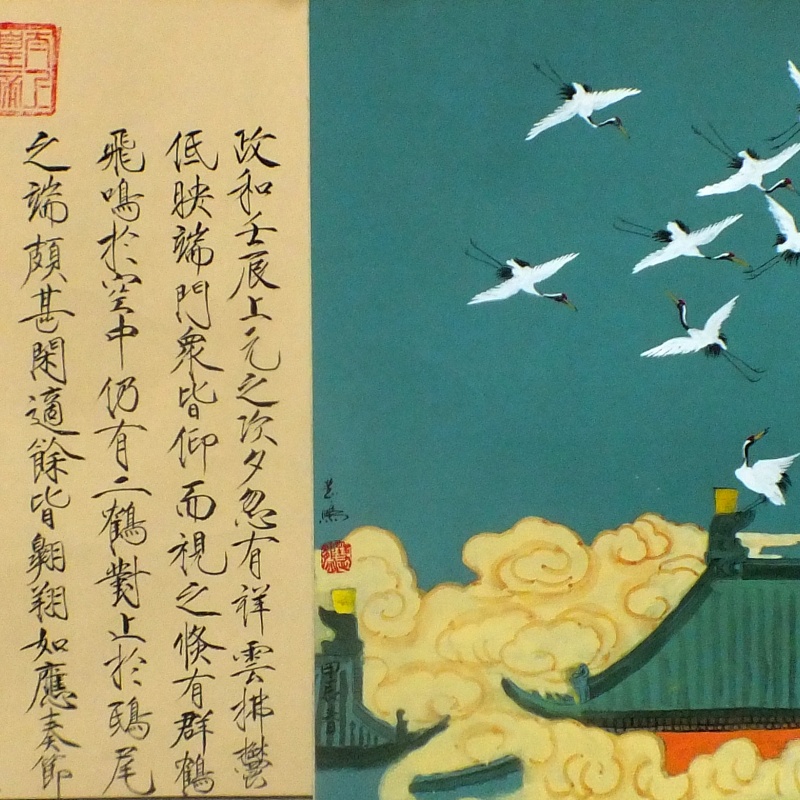 政和壬辰上元之次夕忽有祥雲拂鬱
低映端門衆皆仰而視之倐有群鶴
飛鳴於空中仍有二鶴對止於鴟尾
之端頗甚閑適餘皆翱翔如應奏節